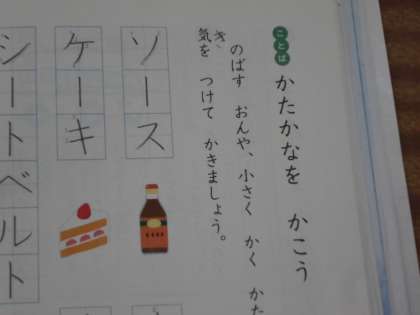 ことば
かたかなを かこう
のばす おんや、小さく かく かた
き
気を つけて かきましょう。
ソース
ケーキ
シートベルト